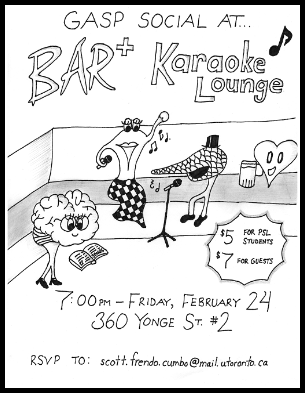 GASP SOCIAL AT...
BAR+ Karaoke
Lounge
$5 FOR PSL
STUDENTS
$7 FOR GUESTS
7:00PM – FRIDAY, FEBRUARY 24
360 YONGE ST. #2
RSVP TO: scott.frendo.cumbo@mail.utoronto.ca